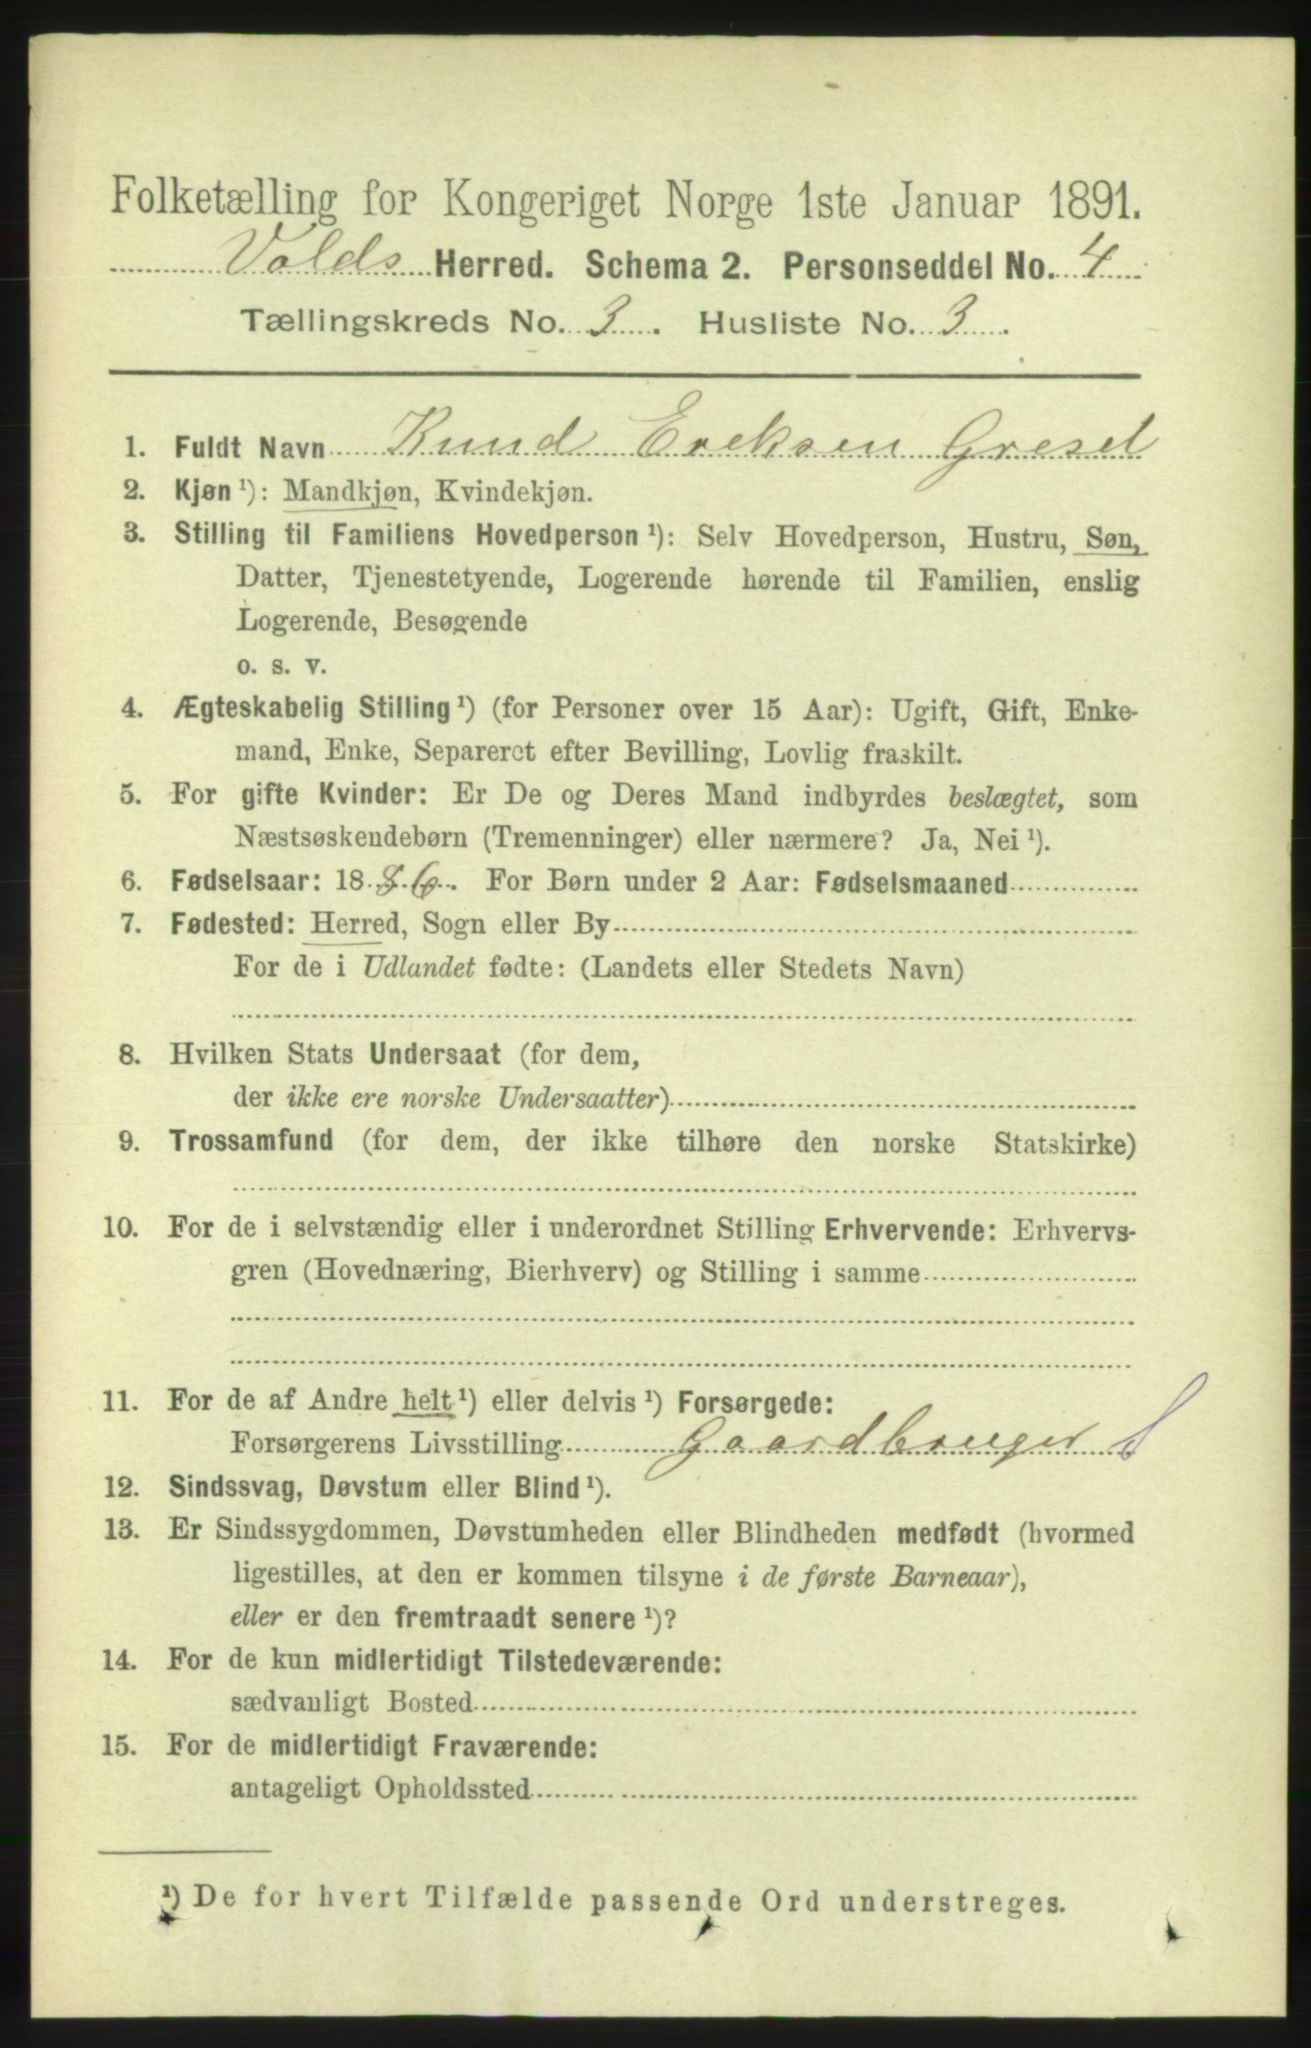 Folketælling for Kongeriget Norge 1ste Januar 1891.
Volds Herred. Schema 2. Personseddel No. 4
Tællingskreds No. 3. Husliste No. 3.
1. Fuldt Navn Knud Ereksen Gresel
2. Kjøn ¹): Mandkjøn, Kvindekjøn.
3. Stilling til Familiens Hovedperson ¹): Selv Hovedperson, Hustru, Søn,
Datter, Tjenestetyende, Logerende hørende til Familien, enslig
Logerende, Besøgende
o. s. v.
4. Ægteskabelig Stilling ¹) (for Personer over 15 Aar): Ugift, Gift, Enke-
mand, Enke, Separeret efter Bevilling, Lovlig fraskilt.
5. For gifte Kvinder: Er De og Deres Mand indbyrdes beslægtet, som
Næstsøskendebørn (Tremenninger) eller nærmere? Ja, Nei ¹).
6. Fødselsaar: 1886. For Børn under 2 Aar: Fødselsmaaned
7. Fødested: Herred, Sogn eller By
For de i Udlandet fødte: (Landets eller Stedets Navn)
8. Hvilken Stats Undersaat (for dem,
der ikke ere norske Undersaatter)
9. Trossamfund (for dem, der ikke tilhøre den norske Statskirke)
10. For de i selvstændig eller i underordnet Stilling Erhvervende: Erhvervs-
gren (Hovednæring, Bierhverv) og Stilling i samme
11. For de af Andre helt ¹) eller delvis ¹) Forsørgede:
Forsørgerens Livsstilling Gaardbruger S
12. Sindssvag, Døvstum eller Blind ¹).
13. Er Sindssygdommen, Døvstumheden eller Blindheden medfødt (hvormed
ligestilles, at den er kommen tilsyne i de første Barneaar),
eller er den fremtraadt senere ¹)?
14. For de kun midlertidigt Tilstedeværende:
sædvanligt Bosted
15. For de midlertidigt Fraværende:
antageligt Opholdssted
¹) De for hvert Tilfælde passende Ord understreges.